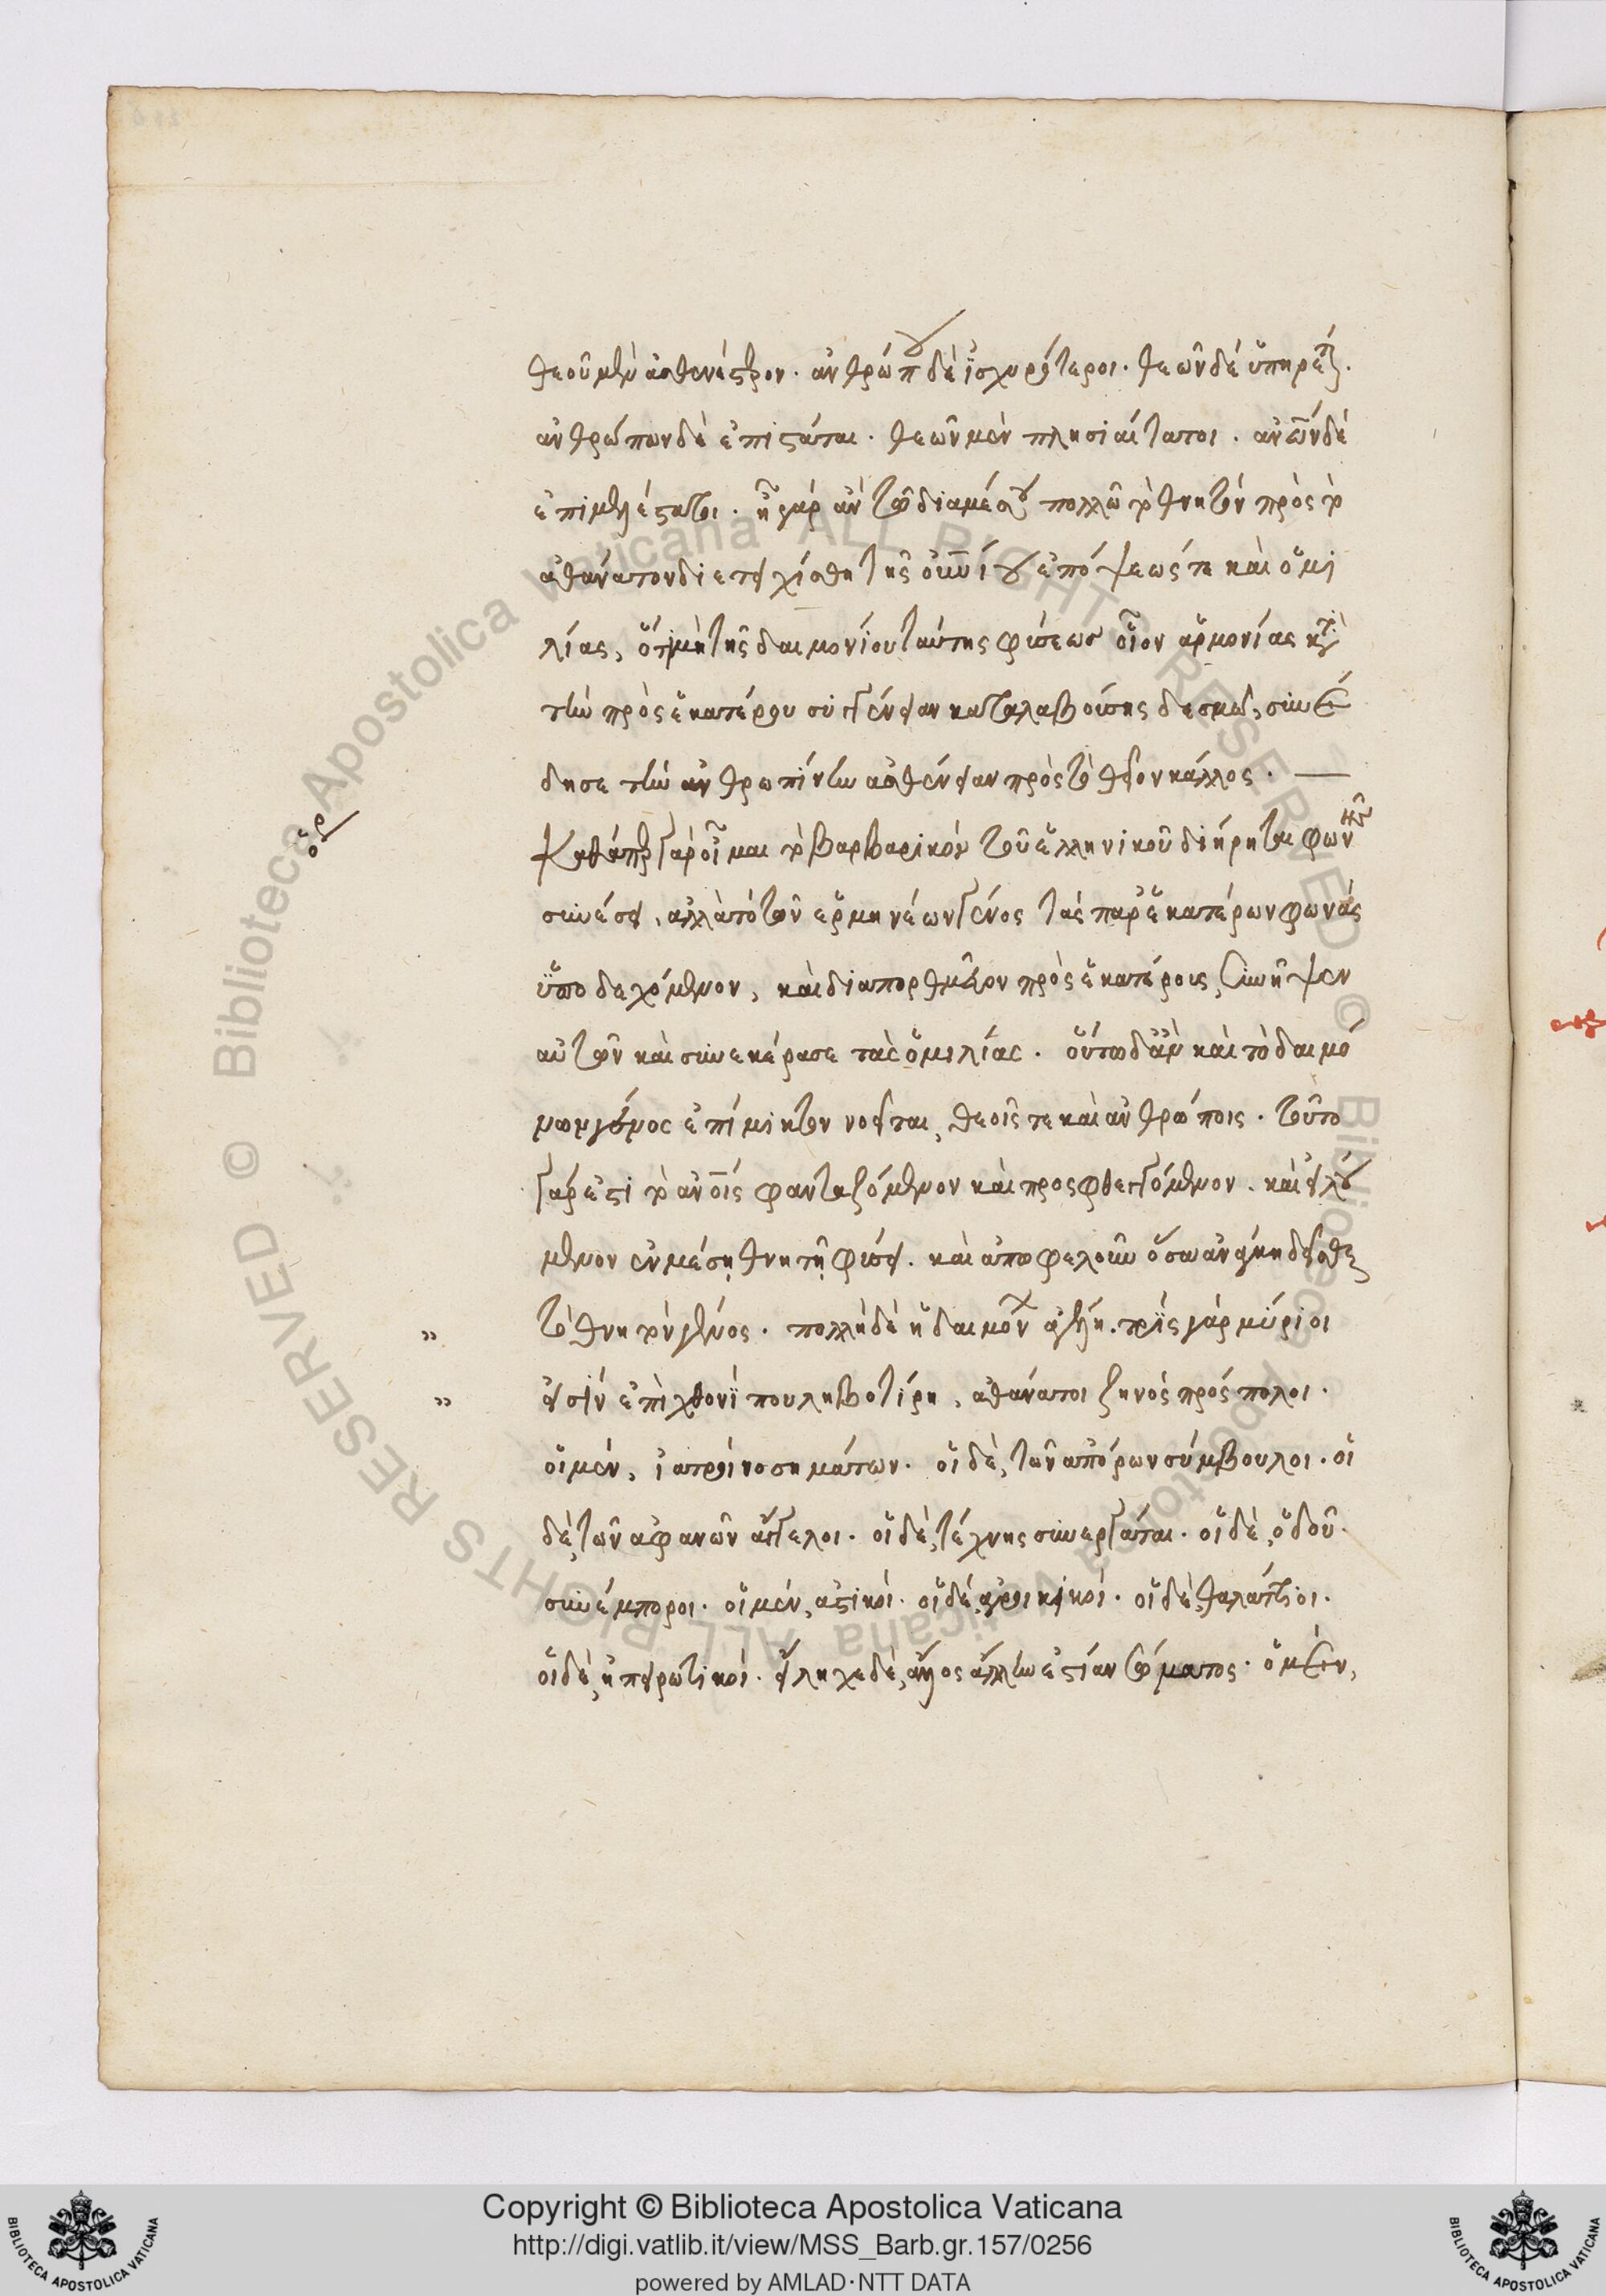 θεοῦ μὲν ἀσθενέστερον. ἀνθρώπου δὲ ἰσχυρότεροι. θεῶν δὲ ὑπηρέται.
ἀνθρώπων δὲ ἐπιστάται. θεῶν μὲν πλησιαίτατοι. ἀνῶν δὲ
ἐπιμελέστατοι. ἦ γὰρ ἂν τῶ διαμέσου πολλῶ τὸ θνητὸν πρὸς τὸ
ἀθάνατον διετειχίσθη τῆς οὐνίου ἐπόψεώς τε καὶ ὁμι
λίας, ὅτι μὴ τῆς δαιμονίου ταύτης φύσεως οἷον ἁρμονίας κατὰ
τὴν πρὸς ἑκατέρου συγγένειαν καταλαβούσης δεσμῶ, συνέ
δησε τὴν ἀνθρωπίνην ἀσθένειαν πρὸς τὸ θεῖον κάλλος.
Καθάπερ γὰρ οἶμαι τὸ βαρβαρικὸν τοῦ ἑλληνικοῦ διήρηται φωνῆς
συνέσει, ἀλλὰ τὸ τῶν ἑρμηνέων γένος τὰς παρ' ἑκατέρων φωνὰς
ὑποδεχόμενον, καὶ διαπορθμεῦον πρὸς ἑκατέρους, συνῆψεν
αὐτῶν καὶ συνεκέρασε τὰς ὁμιλίας. οὕτω δ' ἂν καὶ τὸ δαιμό
νων γένος ἐπίμικτον νοεῖται, θεοῖς τε καὶ ἀνθρώποις. τοῦτο
γάρ ἐστι τὸ ἀνοις φανταζόμενον καὶ προσφθεγγόμενον. καὶ εἰλού
μενον ἐν μέση θνητῆ φύσει. καὶ ἐπωφελοῦν ὅσω ἀνάγκη δεῖσθαι
τὸ θνητὸν γένος. πολλὴ δὲ ἡ δαιμόνων ἀγέλη. τρὶς γὰρ μύριοι
εἰσὶν ἐπὶ χθονὶ πουλυβοτείρη, ἀθάνατοι ζηνὸς πρόσπολοι.
οἱ μὲν, ἰατροὶ νοσημάτων. οἱ δὲ, τῶν ἀπόρων σύμβουλοι. οἱ
δὲ, τῶν ἀφανῶν ἄγγελοι. οἱ δὲ, τέχνης συνεργάται. οἱ δὲ, ὁδοῦ
συνέμποροι. οἱ μὲν, ἀστικοί. οἱ δὲ, ἀγροικικοί. οἱ δὲ, θαλάττιοι.
οἱ δὲ, ἠπειρωτικοί. εἴληχε δὲ, ἄλλος ἄλλην ἑστίαν σώματος. ὁ μὲν,